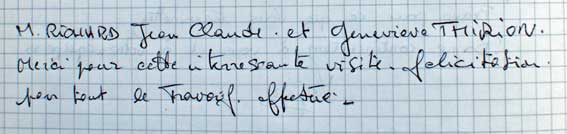 M. RICHARD Jean Claude. et Geneviève THIRION.
Merci pour cette interessante visite. felicitation.
pour tout le travail. effectué.